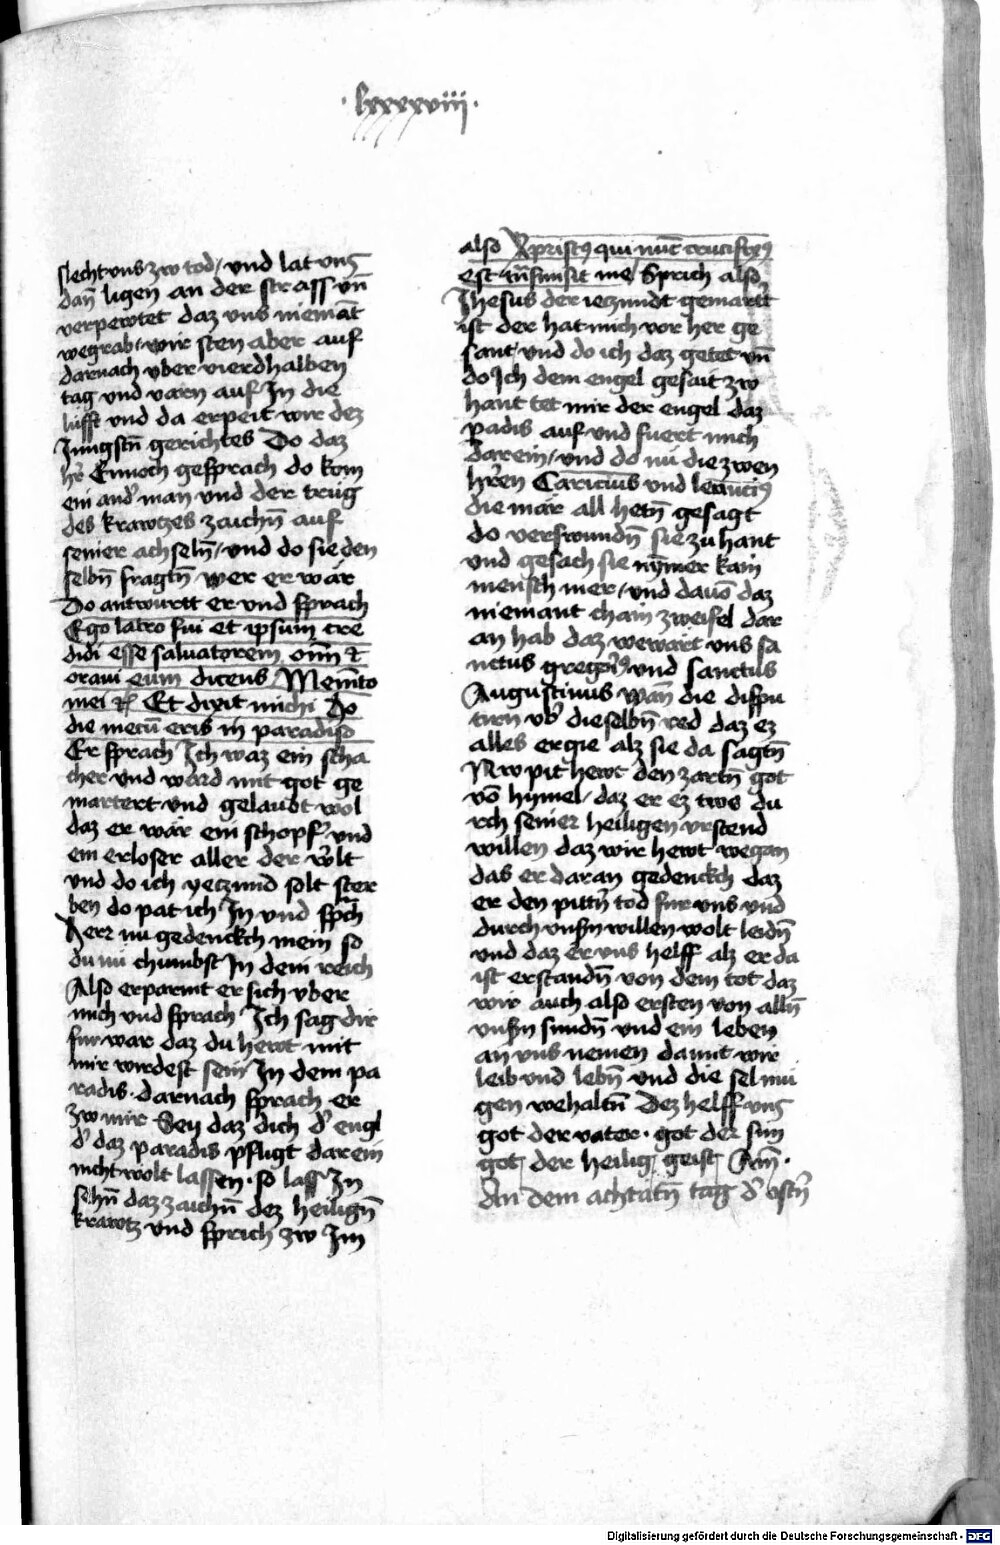 · lxxxxviij ·
slecht vns zw tod / vnd lat vns
dan̄ ligen an der strass vn̄
verpewtet daz vns niemāt
wegrab / wir sten aber auf
darnach vber vierdhalben
tag vnd varn auf In die
lufft vnd da erpeit wir dez
Jungstn̄ gerichtes Do daz
hr̄ Ennoch gesprach do kom
ein and' man vnd der trug
des krawtzes zaichn̄ auf
seiner achseln̄ / vnd do sie den
selbn̄ fragtn̄ wer er wär
Do antwurtt er vnd sprach
Ego latro fui et ipsum cre
didi esse saluatorem om̄ı et
oraui eum dicens Mem̄to
mei etc̄ Et dixit michi Ho
die mecū eris in paradiso
Er sprach Ich waz ein scha
cher vnd ward mit got ge
martert vnd gelaubt wol
daz er wär ein schopf' vnd
ein erloser aller der w'lt
vnd do ich yeczund solt ster
ben do pat ich In vnd sp̄ch
Herr nu gedenckch mein so
du nu chumbst In dein reich
Also erparmt er sich vber
mich vnd sprach Ich sag dir
fur war daz du hewt mit
mir wirdest sein In dem pa
radis · darnach sprach er
zw mir Sey daz dich d' engl
d' daz paradis pfligt darein
nicht wolt lassen · so lass In
sehn̄ daz zaichn̄ dez heilign̄
krawtz vnd sprich zw Im
also Xp̄ristꝰ qui nūc crucifixꝰ
est me Sprich also
Jhesus der ieczundt gemartt'
ist der hat mich vor her ge
sant vnd do ich daz getet vn̄
do Ich dem engel gesait zw
hant tet mir der engel daz
padis auf vnd fuert mich
darein / vnd do nu die zwen
hr̄en Caricius vnd leuuciꝰ
die mär all hetn̄ gesagt
do verswundn̄ sie zu hant
vnd gesach sie nȳmer kain
mensch mer / vnd dauō daz
niemant chain zweifel dar
an hab daz wewärt vns sa
nctus gregori'ꝰ vnd sanctus
Augustinus wan̄ die dispu
tirn vb' dieselbn̄ red daz ez
alles ergie alz sie da sagtn̄
Nw pit hewt den zartn̄ got
vō hymel / daz er ez tws du
rch seiner heiligen vrstend
willen daz wir hewt wegan
das er daran gedenckch daz
er den pittn̄ tod fur vns vnd
durch vnsn̄ willen wolt leidn̄
vnd daz er vns helff alz er da
ist erstandn̄ von dem tot daz
wir auch also ersten von alln̄
vnsn̄ sundn̄ vnd ein leben
an vns nemen damit wir
leib vnd lebn̄ vnd die sel mu
gen wehaltn̄ Dez helff vns
got der vater · got der sun
got der heilig geist Am̄ ·
An dem achtatn̄ tag d' ostn̄
Digitalisierung gefördert durch die Deutsche Forschungsgemeinschaft - DFG